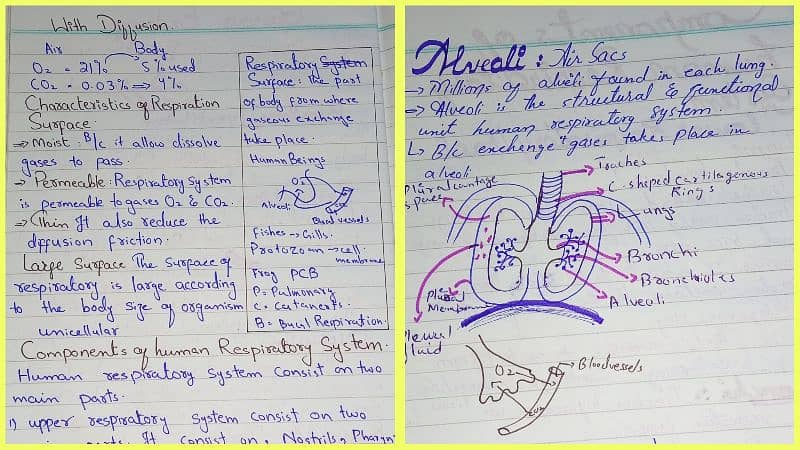 With Diffusion.
Air Body
O2 = 21% 5% used
CO2 = 0.03% ⇒ 4%
Characteristics of Respiration
Surface:
⇒ Moist: B/c it allow dissolve
gases to pass.
→ Permeable: Respiratory System
is permeable to gases O2 & CO2.
→ Thin It also reduce the
diffusion friction.
Large Surface The surface of
respiratory is large according
to the body size of organism
unicellular
Respiratory System
Surface: the part
of body from where
gaseous exchange
take place.
Human Beings
O2
Alveoli
Blood vessels
Fishes → Gills.
Protozoan → cell
membrane
Frog PCB
P = Pulmonary
C = Cutaneots.
B = Bucal Respiration.
Components of human Respiratory System.
Human respiratory system consist on two
main parts.
1) upper respiratory system consist on two
parts. It consist on, Nostrils, Pharyn
Alveoli: Air Sacs
→ Millions of alveli found in each lung.
→ Alveoli is the structural & functional
unit human respiratory system.
↳ B/c exchenge of gases takes place in
alveoli.
Traches
C-shaped cartilagenous
Rings
Lungs
Bronchi
Bronchioles
Alveoli
Plural
Membran
fluid
O2
Bloodvessels